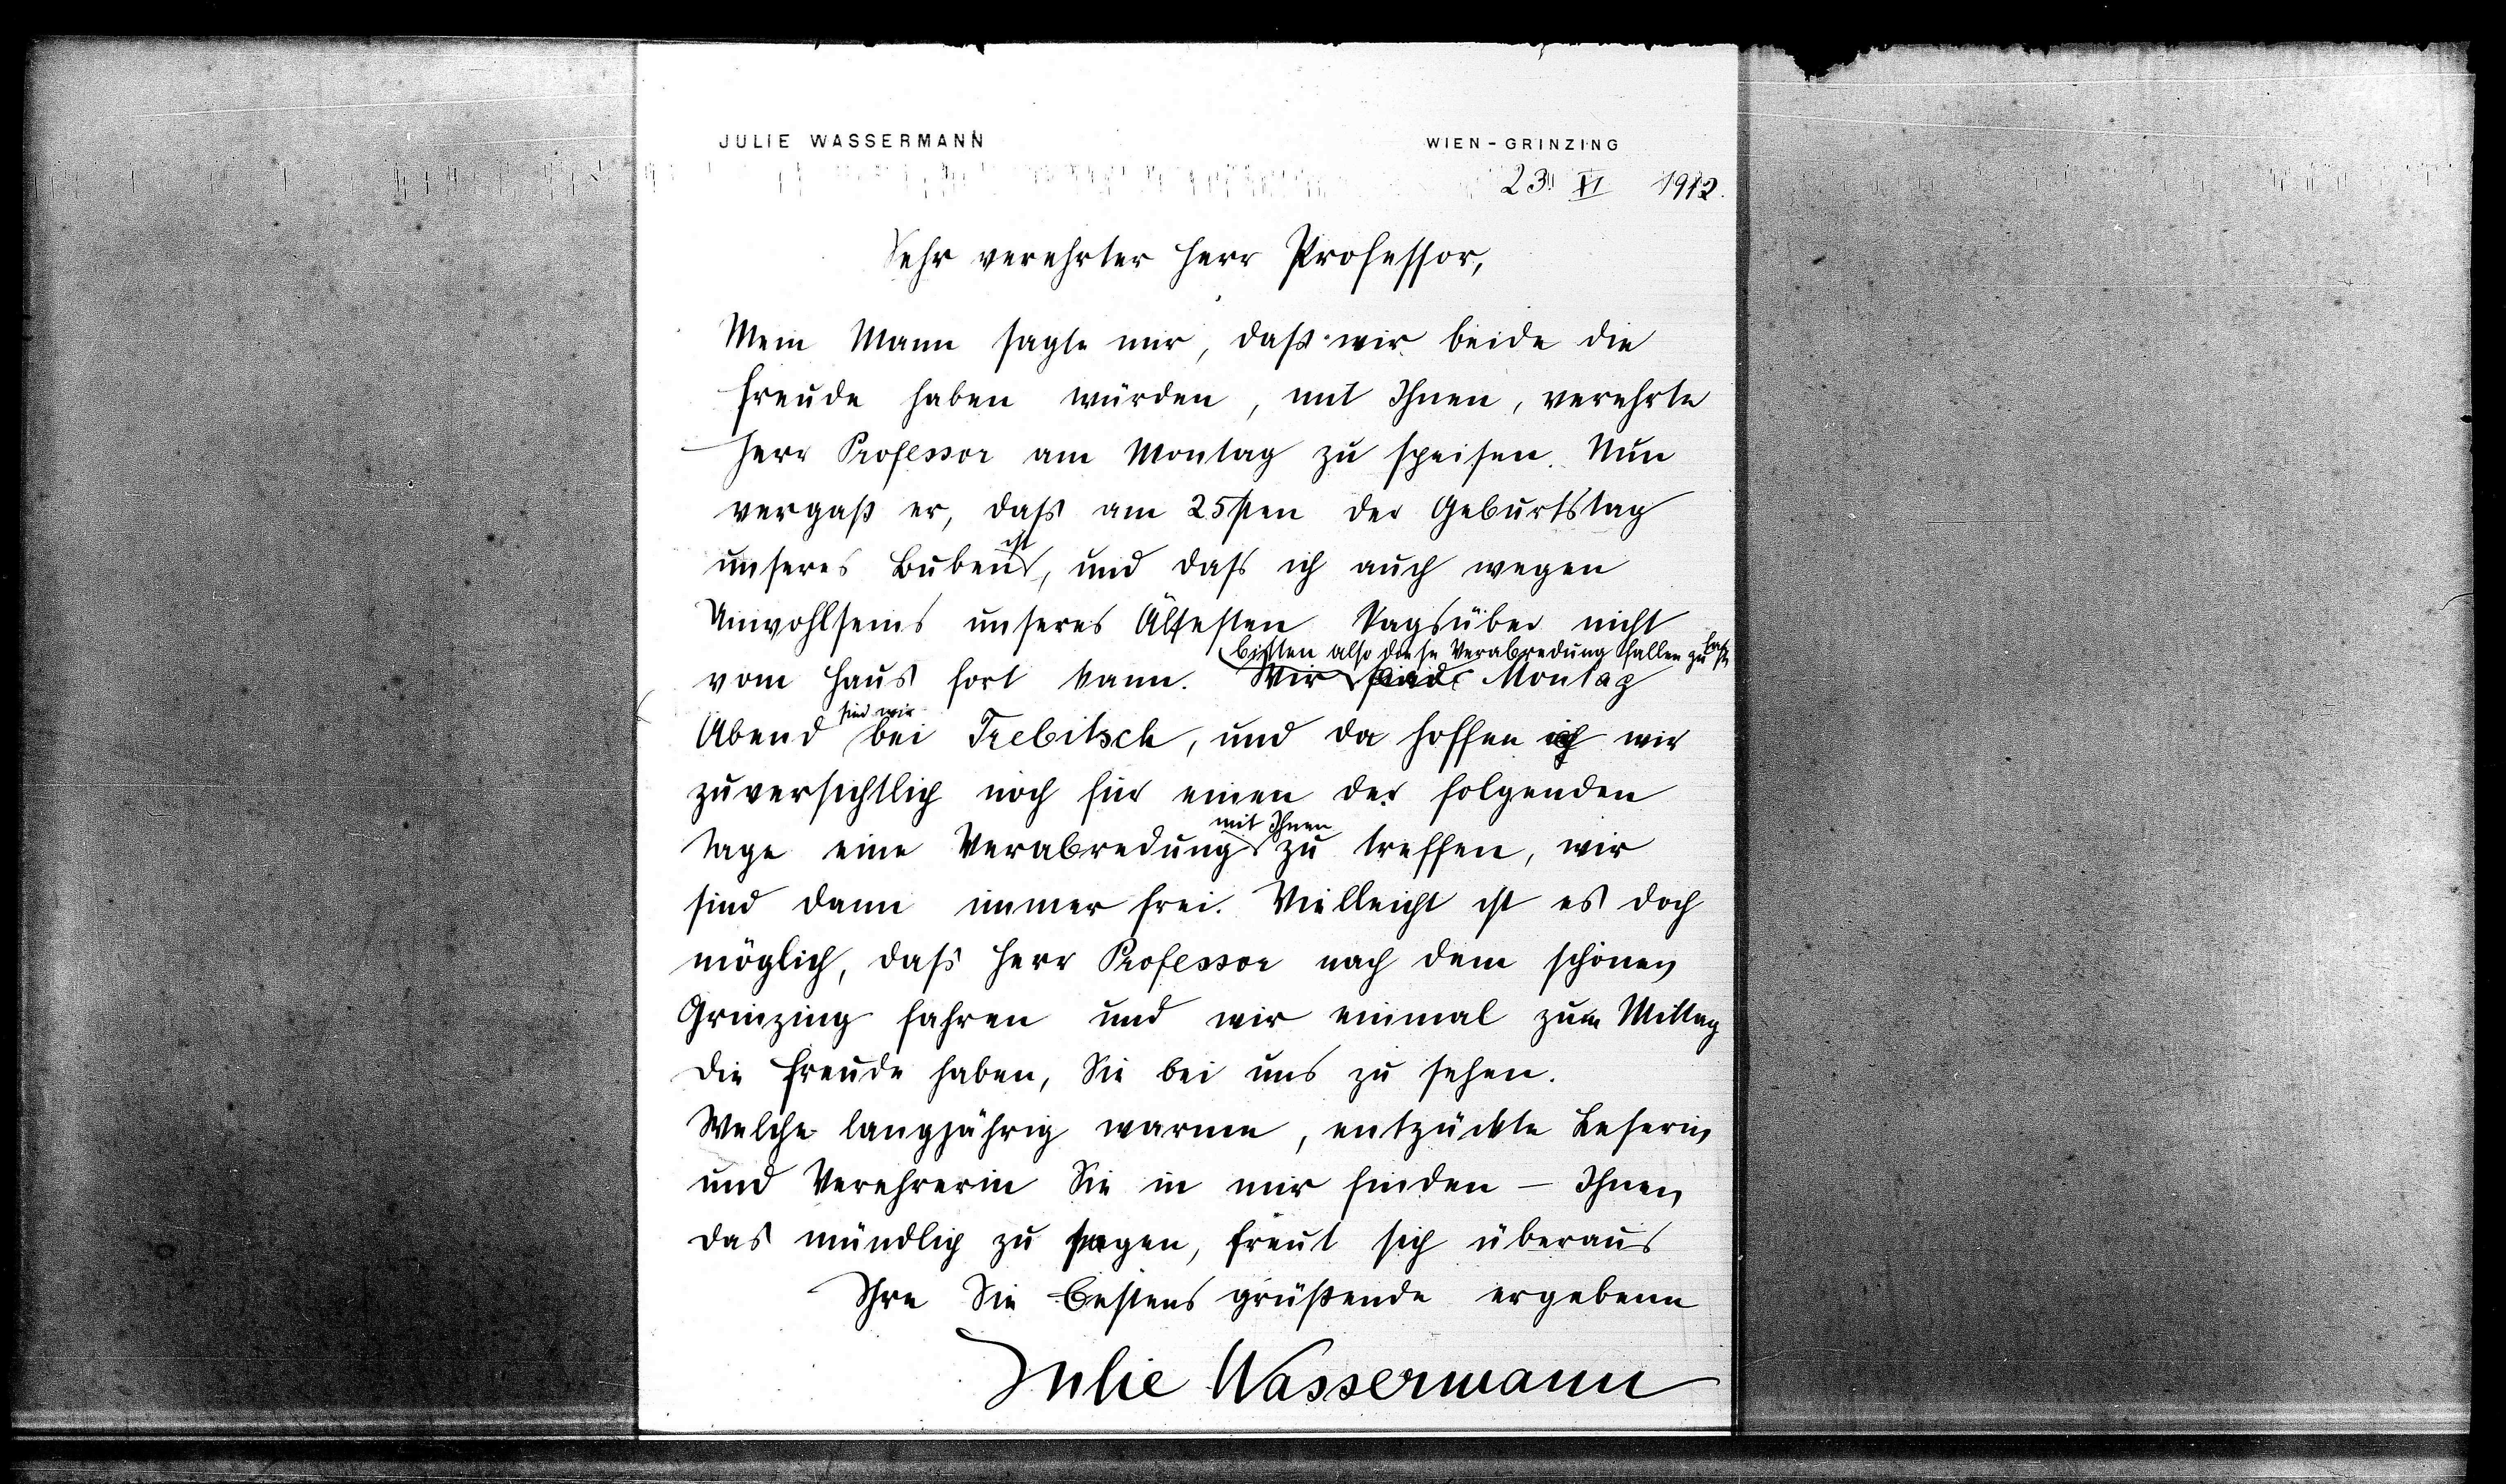 JULIE WASSERMANN
WIEN-GRINZING
23. XI 1912.
Sehr verehrter Herr Professor,
Mein Mann sagte mir, daß wir beide die
Freude haben würden, mit Ihnen, verehrte
Herr Professor am Montag zu speisen. Nun
vergaß er, daß am 25sten der Geburtstag
unseres Buben ist, und daß ich auch wegen
Unwohlseins unseres Ältesten tagsüber nicht
vom Haus fort kann. Wir bitten also diese Verabredung fallen zu lassen. Montag
Abend sind wir bei Trebitsch, und da hoffen wir
zuversichtlich noch für einen der folgenden
Tage eine Verabredung mit Ihnen zu treffen, wir
sind dann immer frei. Vielleicht ist es doch
möglich, daß Herr Professor nach dem schönen
Grinzing fahren und wir einmal zum Mittag
die Freude haben, Sie bei uns zu sehen.
Welche langjährig warme, entzückte Leserin
und Verehrerin Sie in mir finden – Ihnen
das mündlich zu sagen, freut sich überaus
Ihre Sie bestens grüßende ergebene
Julie Wassermann